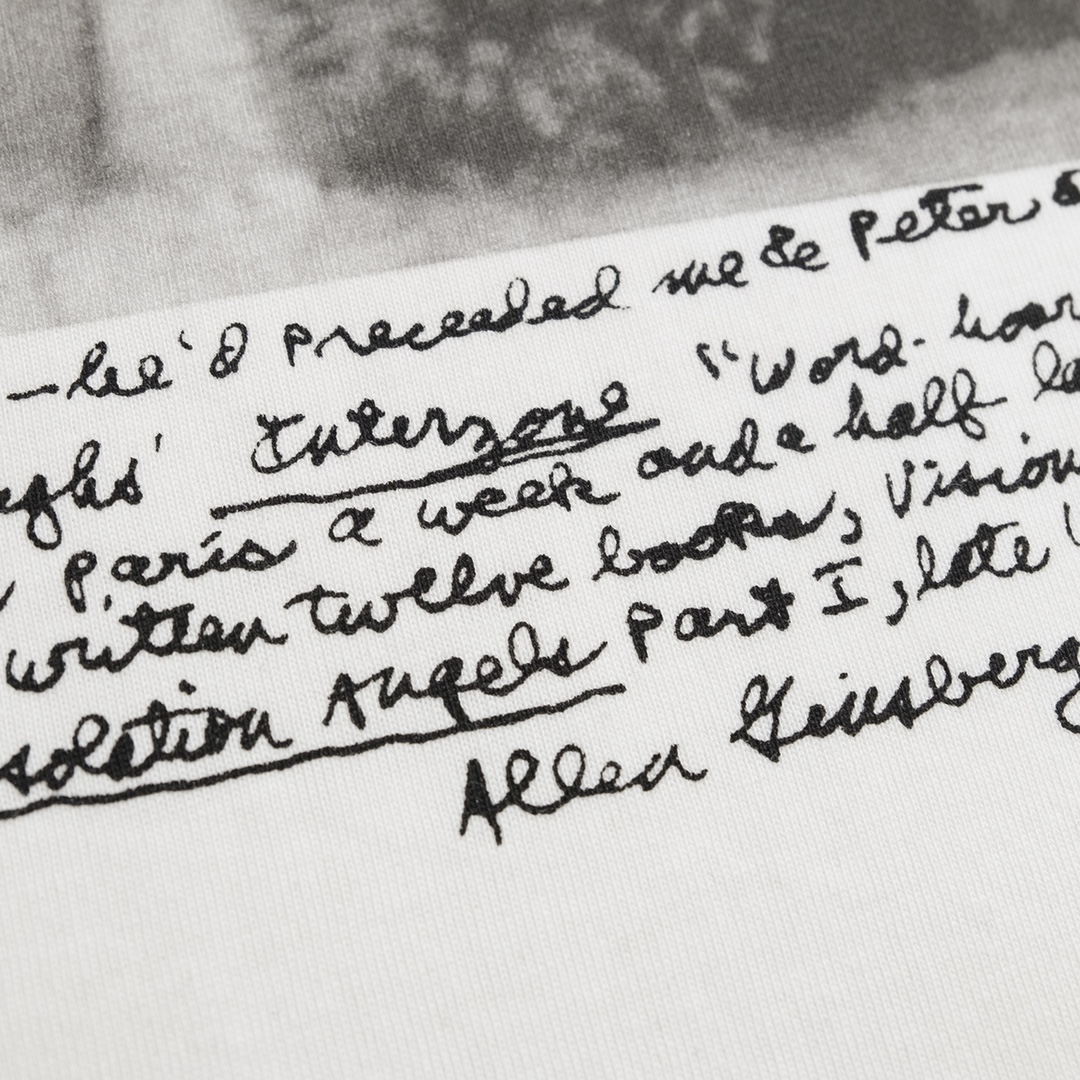 —he'd preceeded me & Peter
ughs' Interzone "Word-hoar
Paris a week and a half
written twelve books, Vision
solation Angels Part I, late
Allen Ginsberg